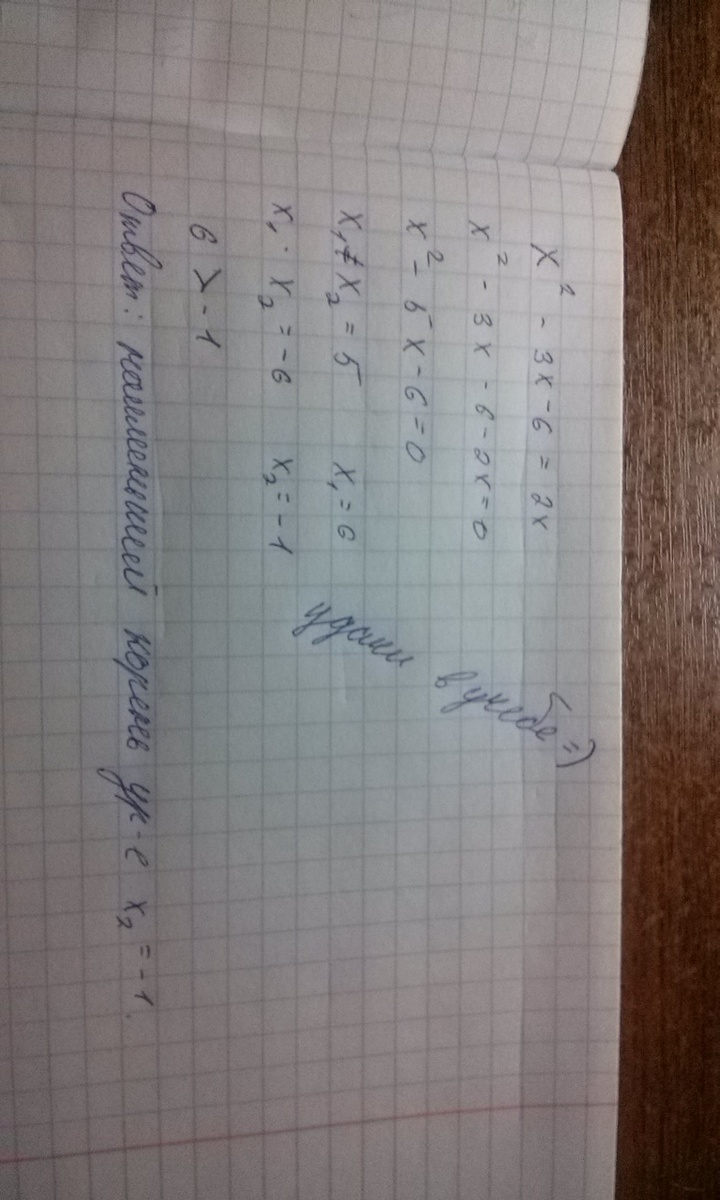 x² - 3x - 6 = 2x
x² - 3x - 6 - 2x = 0
x² - 5x - 6 = 0
x₁ + x₂ = 5 x₁ = 6
x₁ · x₂ = -6 x₂ = -1
6 > -1
Ответ: наименьший корень ур-е x₂ = -1.
удачи в учебе =)